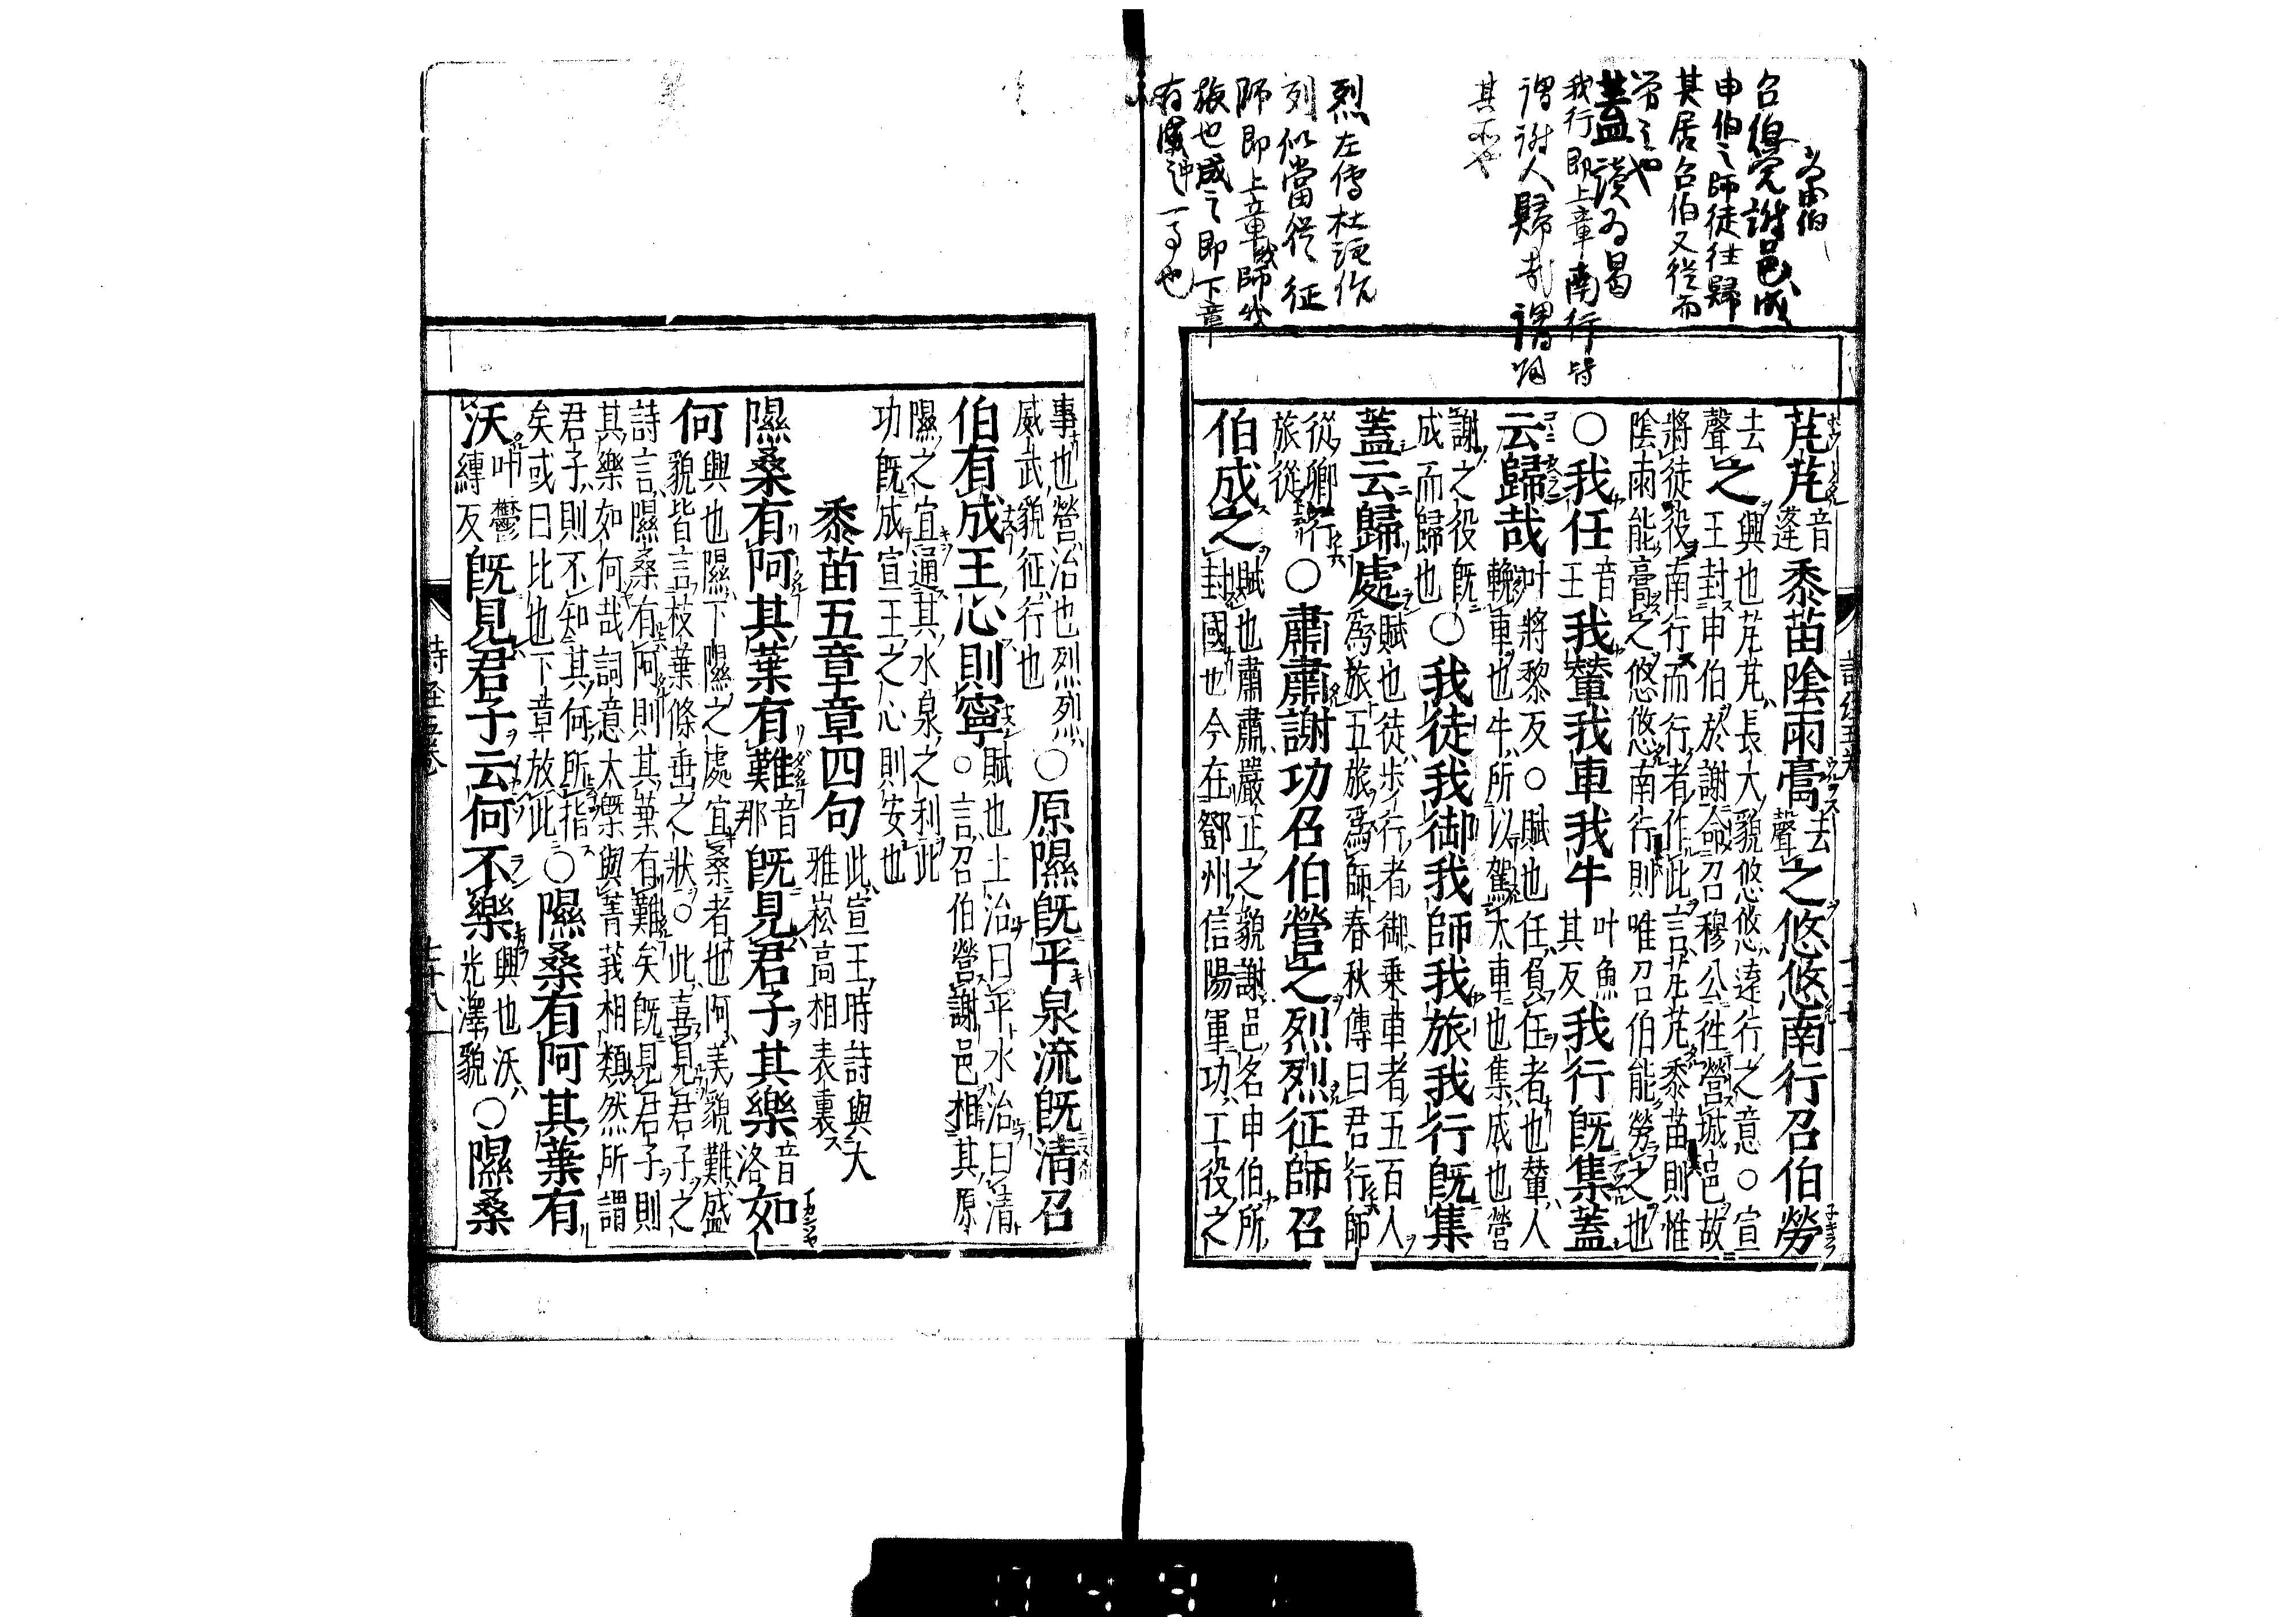 芃芃音蓬黍苗陰雨膏去聲之悠悠南行召伯勞
去聲之興也芃芃長大貌悠悠遠行之意○宣
王封申伯於謝命召穆公往營城邑故
將徒役南行而行者作此言芃芃黍苗則惟
陰雨能膏之悠悠南行則唯召伯能勞之也
○我任音壬我輦我車我牛叶魚其反我行既集蓋
云歸哉叶將黎反○賦也任負任者也輦人
輓車也牛所以駕大車也集成也營
謝之役既成而歸也○我徒我御我師我旅我行既集
蓋云歸處賦也徒步行者御乘車者五百人
爲旅五旅爲師春秋傳曰君行師
從卿行旅從○肅肅謝功召伯營之烈烈征師召
伯成之賦也肅肅嚴正之貌謝邑名申伯所
封國也今在鄧州信陽軍功工役之
事也營治也烈烈
威武貌征行也○原隰既平泉流既清召
伯有成王心則寧賦也土治曰平水治曰清
○言召伯營謝邑相其原
隰之宜通其水泉之利此
功既成宣王之心則安也
黍苗五章章四句此宣王時詩與大
雅崧高相表裏
隰桑有阿其葉有難音那既見君子其樂音洛如
何興也隰下隰之處宜桑者也阿美貌難盛
貌皆言枝葉條垂之狀○此喜見君子之
詩言隰桑有阿則其葉有難矣既見君子則
其樂如何哉詞意大槩與菁莪相類然所謂
君子則不知其何所指
矣或曰比也下章放此○隰桑有阿其葉有
沃叶鬱縛反既見君子云何不樂興也沃光澤貌○隰桑
申伯之師徒往歸
其居召伯又從而
蓋讀爲曷
我行即上章南行皆
謂謝人歸哉謂
列似當從征
旅也成之即下章